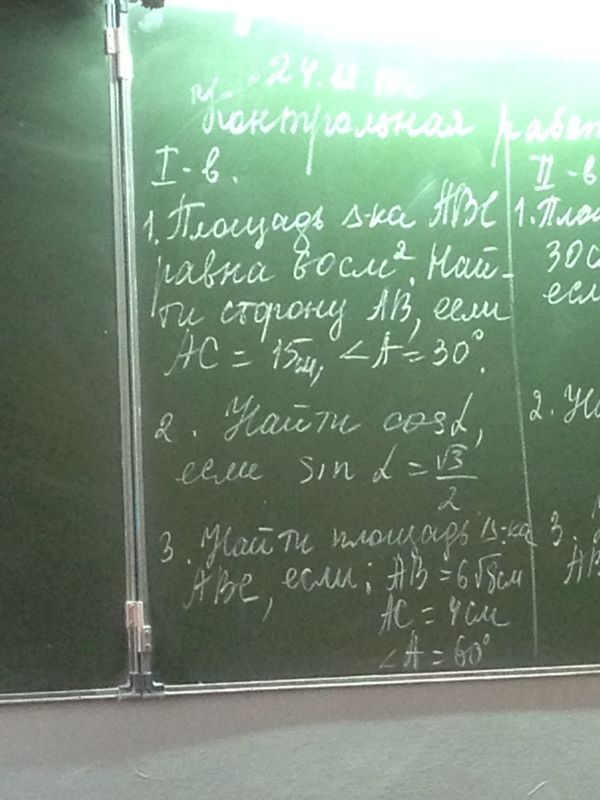 Контрольная работ
I-в.
1. Площадь Δ-ка ABC
равна 60см². Най-
ти сторону AB, если
AC = 15см, ∠A = 30°.
2. Найти cosα,
если sin α = √3/2
3. Найти площадь Δ-ка
ABC, если: AB = 6√8см
AC = 4см
∠A = 60°
II-в
1. Пло
30с
есл
2. На
3.
AB